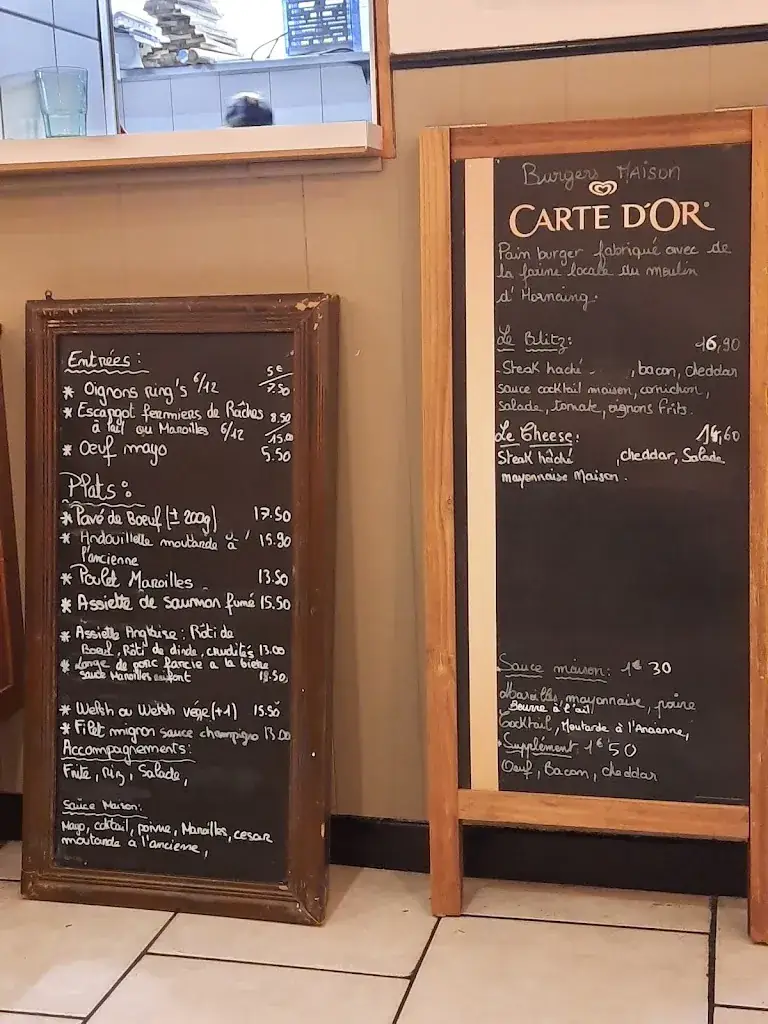 Entrées :
* Oignons ring's 6/12 5€/7.50
* Escargot fermiers de Râches 8.50
à l'ail ou Maroilles 6/12 /15.00
* Oeuf mayo 5.50
Plats :
* Pavé de Boeuf (± 200g) 17.50
* Andouillette moutarde à 15.90
l'ancienne
* Poulet Maroilles 13.50
* Assiette de saumon fumé 15.50
* Assiette Anglaise : Rôti de
Boeuf, Rôti de dinde, crudités 13.00
* Longe de porc farcie a la bière
sauce Maroilles 18.50
* Welsh ou Welsh végé (+1) 15.50
* Filet mignon sauce champigno 13.00
Accompagnements :
Frite, Riz, Salade,
Sauce Maison :
Mayo, cocktail, poivre, Maroilles, cesar
moutarde à l'ancienne,
Burgers MAISON
CARTE D'OR
Pain burger fabriqué avec de
la farine locale du moulin
d'Hornaing.
Le Blitz : 16,90
- Steak haché , bacon, cheddar
sauce cocktail maison, cornichon,
salade, tomate, oignons frits.
Le Cheese : 14,60
Steak haché , cheddar, Salade
mayonnaise Maison.
Sauce maison : 1€30
Maroilles, mayonnaise, poivre
Beurre à l'ail
Cocktail, Moutarde à l'Ancienne,
Supplément 1€50
Oeuf, Bacon, cheddar